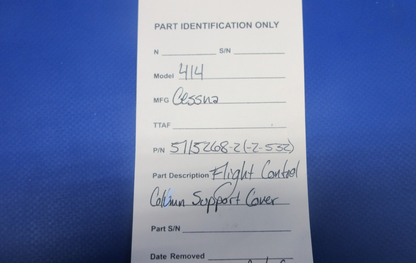 PART IDENTIFICATION ONLY
N S/N
Model 414
MFG Cessna
TTAF
P/N 5115268-2 (-2-532)
Part Description Flight Control
Column Support Cover
Part S/N
Date Removed